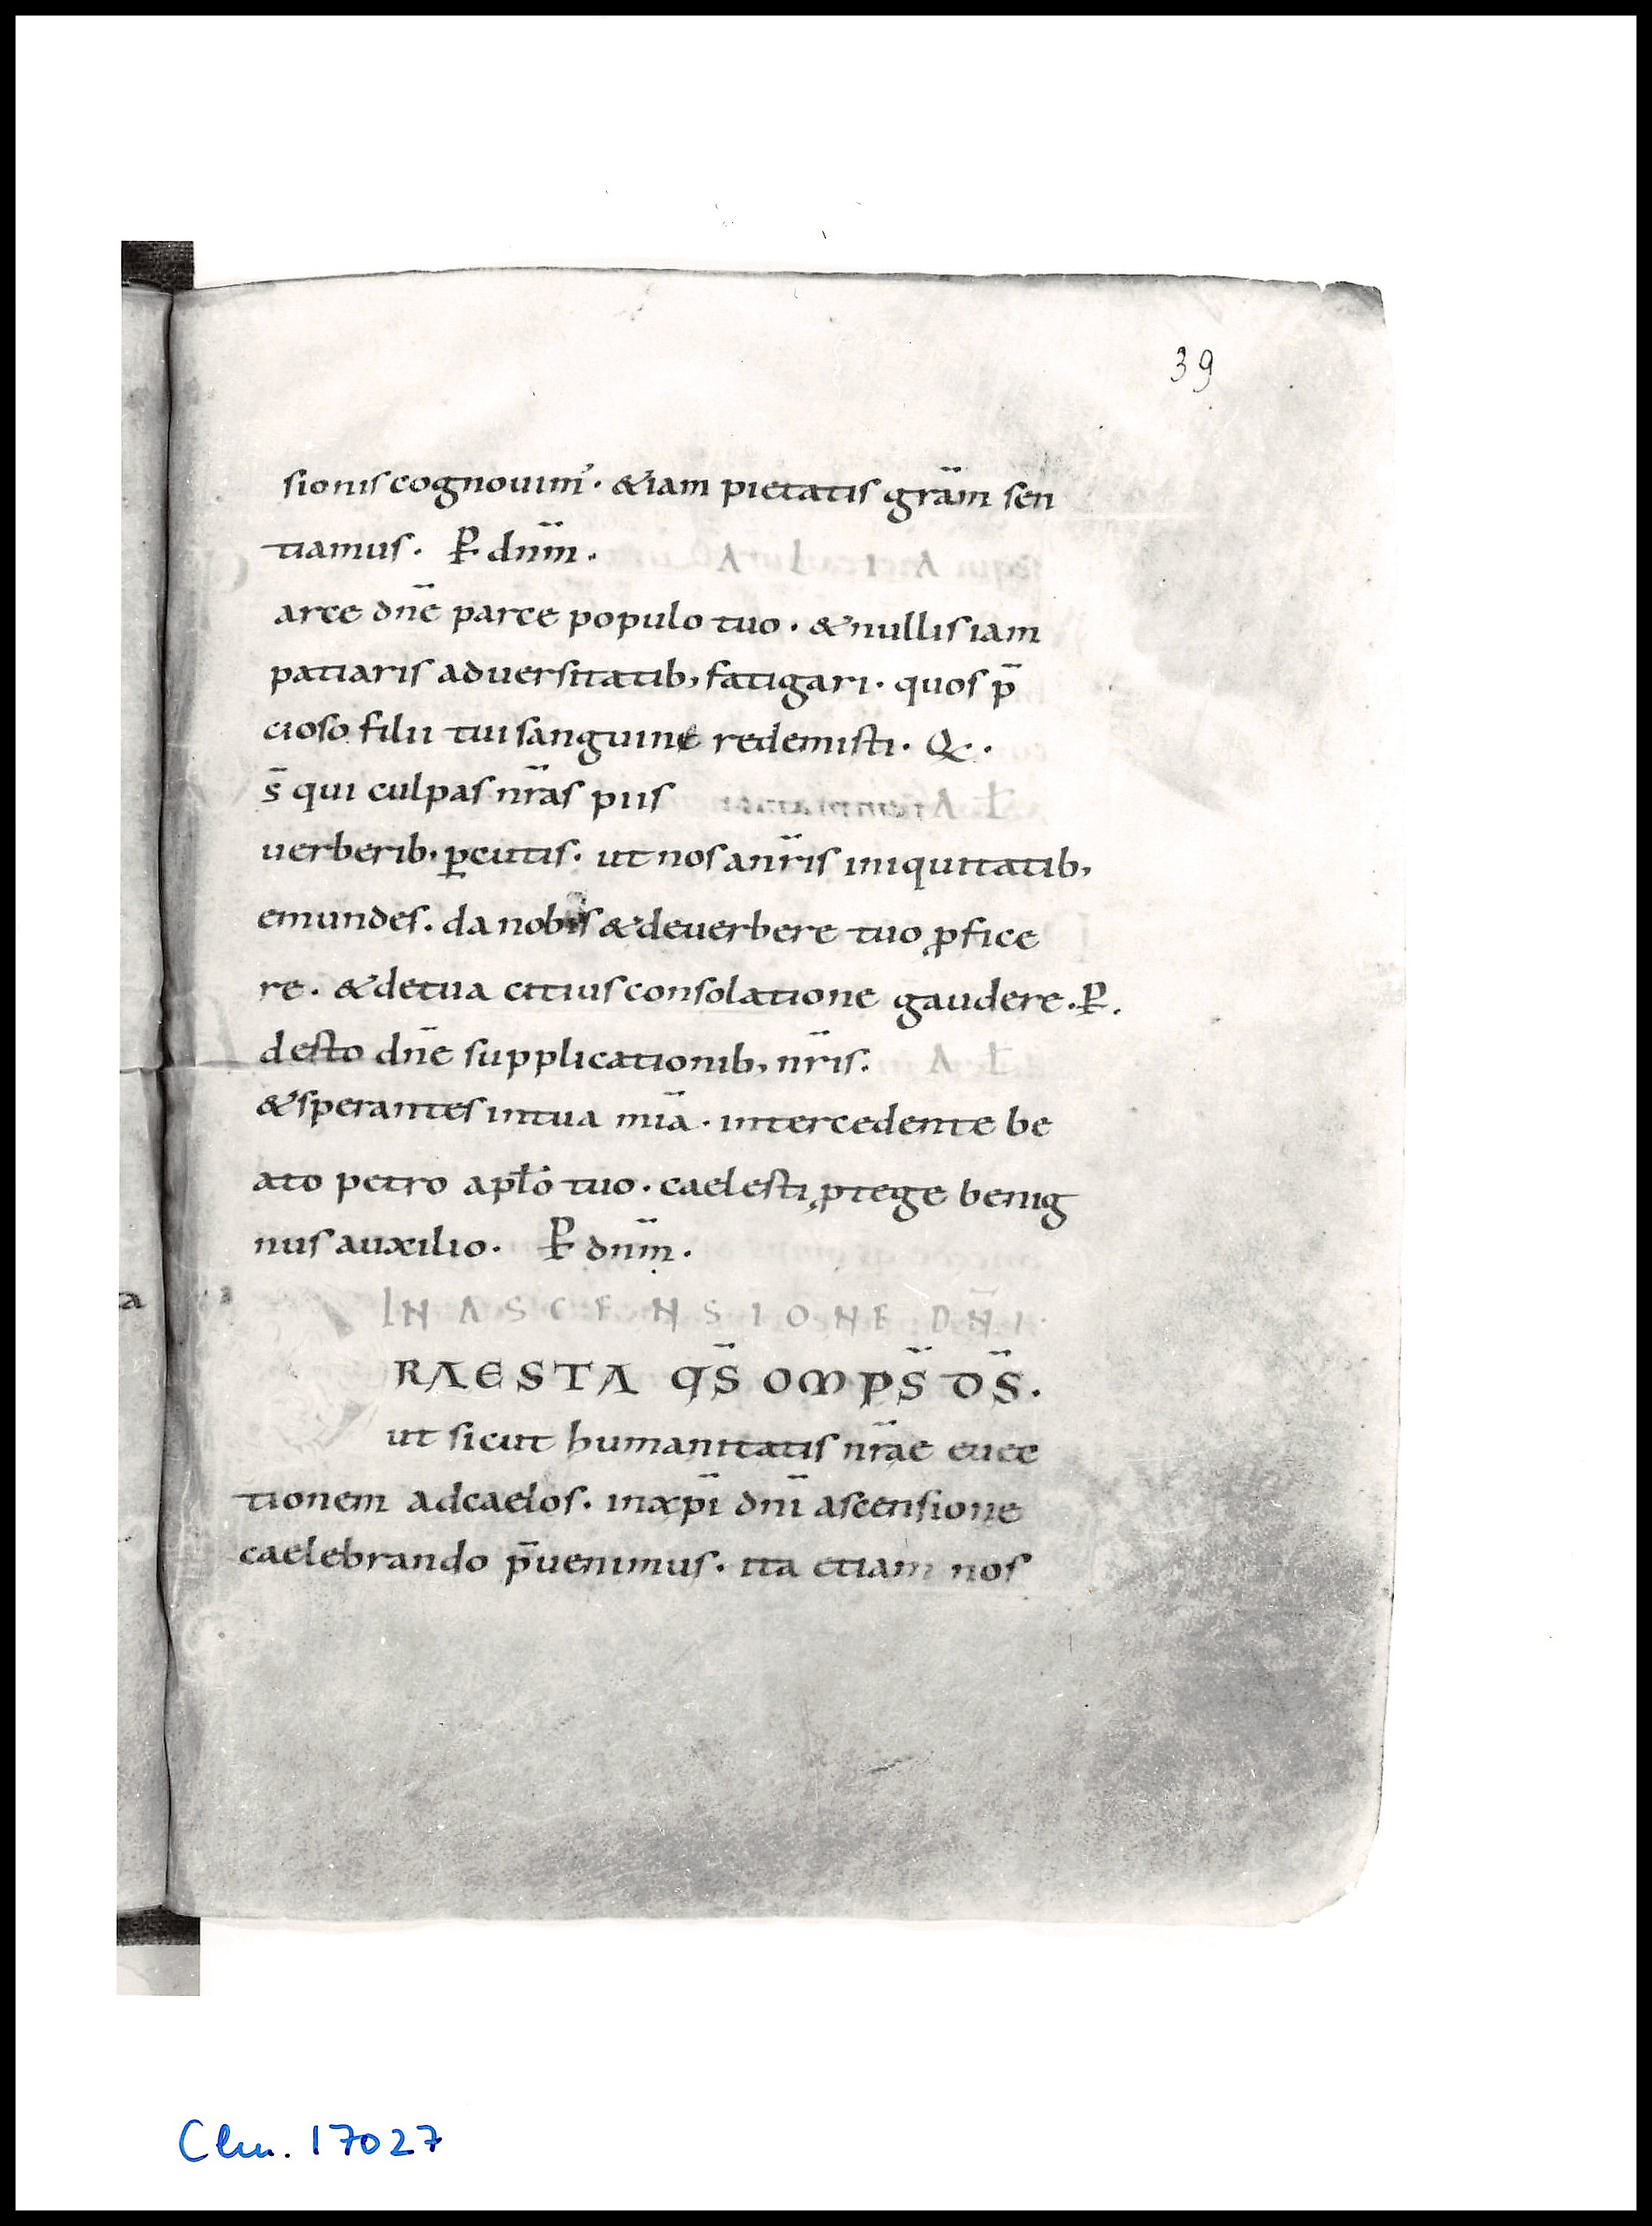 39
sionis cognouim᾽· &iam pietatis gra̅m sen
tiamus· P̲ dn̅m·
arce dn̅e parce populo tuo· & nullis iam
patiaris aduersitatib, fatigari· quos p̅
cioso filii tui sanguine redemisti· Q·
s̅ qui culpas nr̅as piis
uerberib· p̲cutis· ut nos anr̅is iniquitatib,
emundes· da nobis & deuerbere tuo ꝓfice
re· & detua citius consolatione gaudere· P̲·
desto dn̅e supplicationib, nr̅is·
& sperantes intua mi̅a· intercedente be
ato petro apl̅o tuo· caelesti ꝓtege benig
nus auxilio· P̲ dn̅m·
IN ASCENSIONE DN̅I·
RAESTA qs̅ omps̅ ds̅·
ut sicut humanitatis nr̅ae euec
tionem adcaelos· inxpi̅ dni̅ ascensione
caelebrando p̅uenimus· ita etiam nos
a
Clm. 17027